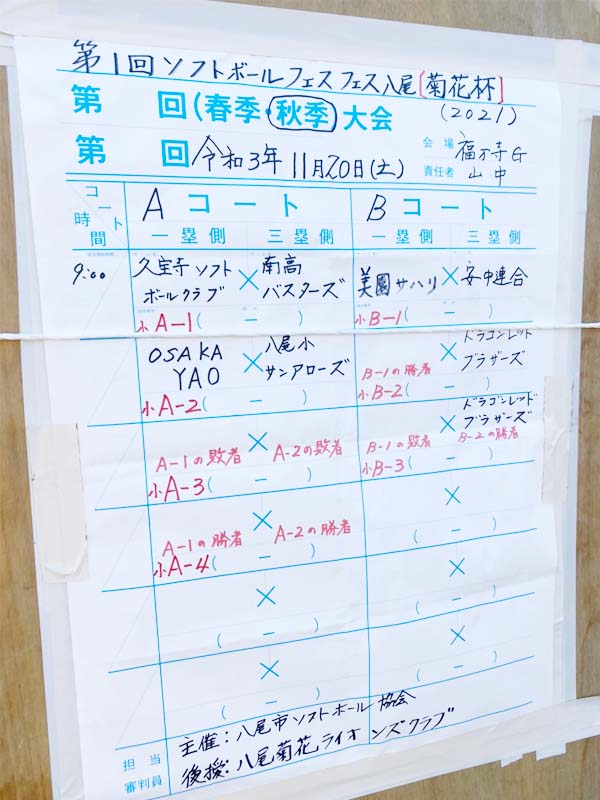 第1回ソフトボールフェスフェス八尾[菊花杯]
第 回(春季・秋季)大会 (2021)
第 回 令和3年11月20日(土)
会場
責任者 山中
コート
時間
Aコート Bコート
一塁側 三塁側 一塁側 三塁側
9:00 久宝寺ソフトボールクラブ × 南高バスターズ 美園サハリ × 安中連合
小A-1( - ) 小B-1( - )
OSAKA YAO × 八尾小サンアローズ B-1の勝者 × ドラゴンレッドブラザーズ
小A-2( - ) 小B-2( - )
A-1の敗者 × A-2の敗者 B-1の敗者 × ドラゴンレッドブラザーズ B-2の勝者
小A-3( - ) 小B-3( - )
A-1の勝者 × A-2の勝者 ×
小A-4( - ) ( - )
× ×
( - ) ( - )
× ×
( - ) ( - )
担当
審判員
主催:八尾市ソフトボール協会
後援:八尾菊花ライオンズクラブ